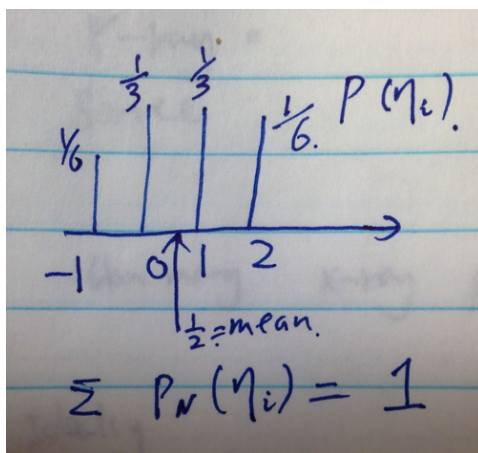 1/3 1/3
1/6 1/6. P(η_i).
-1 0 1 2
1/2 = mean.
Σ P_N(η_i) = 1